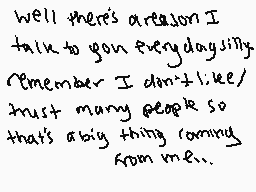 well there's a reason I
talk to you everyday silly.
remember I don't like/
trust many people so
that's a big thing coming
from me...